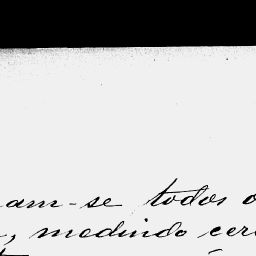 am-se todos o
, medindo cer